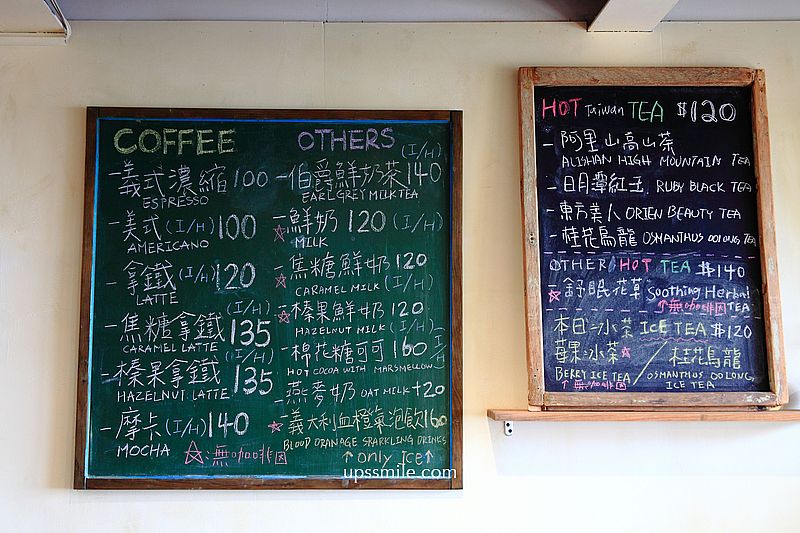 COFFEE
-義式濃縮 100
ESPRESSO
-美式 (I/H) 100
AMERICANO
-拿鐵 (I/H) 120
LATTE
(I/H)
-焦糖拿鐵 135
CARAMEL LATTE
(I/H)
-榛果拿鐵 135
HAZELNUT LATTE
-摩卡 (I/H) 140
MOCHA
☆:無咖啡因
OTHERS (I/H)
-伯爵鮮奶茶 140
EARL GREY MILK TEA
-鮮奶 120 (I/H)
☆ MILK
-焦糖鮮奶 120
☆ CARAMEL MILK (I/H)
-榛果鮮奶 120
☆ HAZELNUT MILK (I/H)
-棉花糖可可 160 (I/H)
HOT COCOA WITH MARSMELLOW
-燕麥奶 OAT MILK +20
☆-義大利血橙氣泡飲 160
BLOOD ORANAGE SPARKLING DRINKS
↑only Ice↑
upssmile.com
HOT Taiwan TEA $120
-阿里山高山茶
ALISHAN HIGH MOUNTAIN TEA
-日月潭紅玉 RUBY BLACK TEA
-東方美人 ORIEN BEAUTY TEA
-桂花烏龍 OSMANTHUS OOLONG TEA
OTHER HOT TEA $140
☆-舒眠花草 Soothing Herbal
↑無咖啡因 TEA
本日冰茶 ICE TEA $120
莓果冰茶☆ / 桂花烏龍
BERRY ICE TEA OSMANTHUS OOLONG
↑無咖啡因 ICE TEA